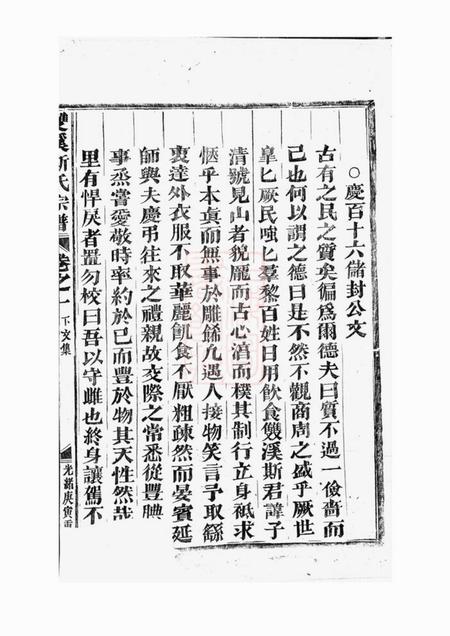 ○慶百十六儲封公文
古有之民之質矣徧為爾德夫曰質不過一儉嗇而
己也何以謂之德曰是不然不觀商周之盛乎厥世
皐匕厥民嗤匕羣黎百姓日用飲食雙溪斯君諱子
清號見山者貌龐而古心渟而樸其制行立身祗求
愜乎本真而無事於雕餙凢遇人接物笑言予取餙
衷達外衣服不取華麗飢食不厭粗疎然而晏賓延
師與夫慶弔往來之禮親故交際之常悉從豐腆
事烝嘗愛敬時率約於己而豐於物其天性然哉
里有悍戾者置勿校曰吾以守雌也終身讓駕不
雙溪斯氏宗譜 卷之一 下文集 光緒庚寅